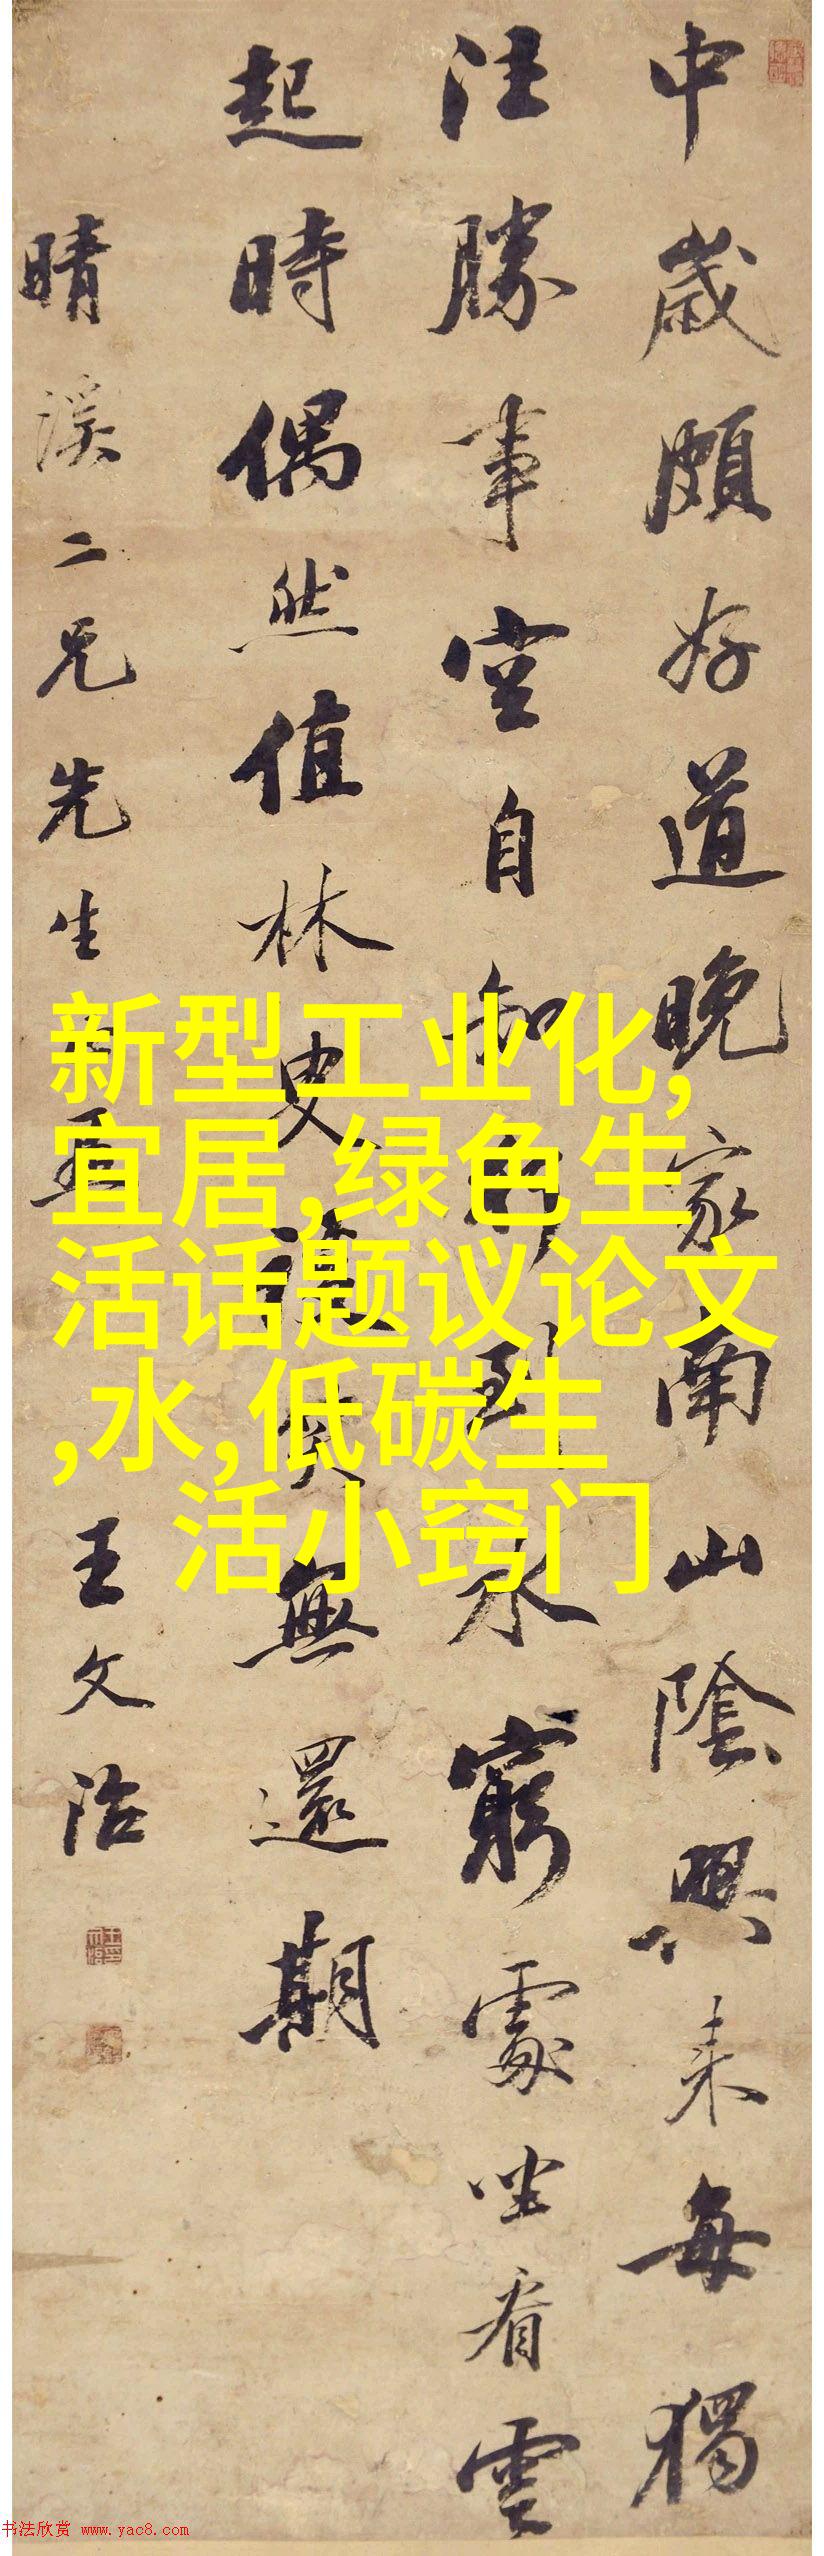 中歲頗好道晚家南山陰興来每獨
往勝事空自知行到水窮處坐看雲
起時偶然值林叟談笑無還期
晴溪二兄先生
王文治
新型工业化,
宜居,绿色生
活话题议论文
,水,低碳生
活小窍门
书法欣赏 www.yac8.com